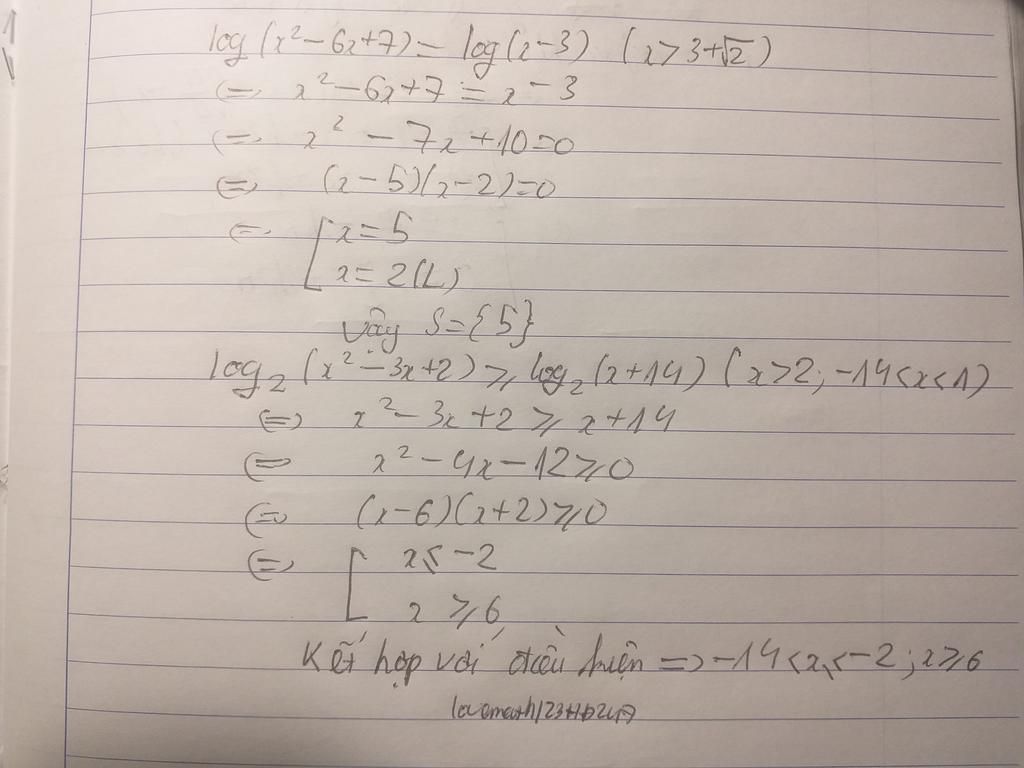 log(x²-6x+7)=log(x-3) (x>3+√2)
⇔ x²-6x+7=x-3
⇔ x²-7x+10=0
⇔ (x-5)(x-2)=0
⇔ [x=5
x=2(L)
Vậy S={5}
log₂(x²-3x+2)⩾log₂(x+14) (x>2;-14<x<1)
⇔ x²-3x+2⩾x+14
⇔ x²-4x-12⩾0
⇔ (x-6)(x+2)⩾0
⇔ [x⩽-2
x⩾6
Kết hợp với điều kiện => -14<x⩽-2; x⩾6